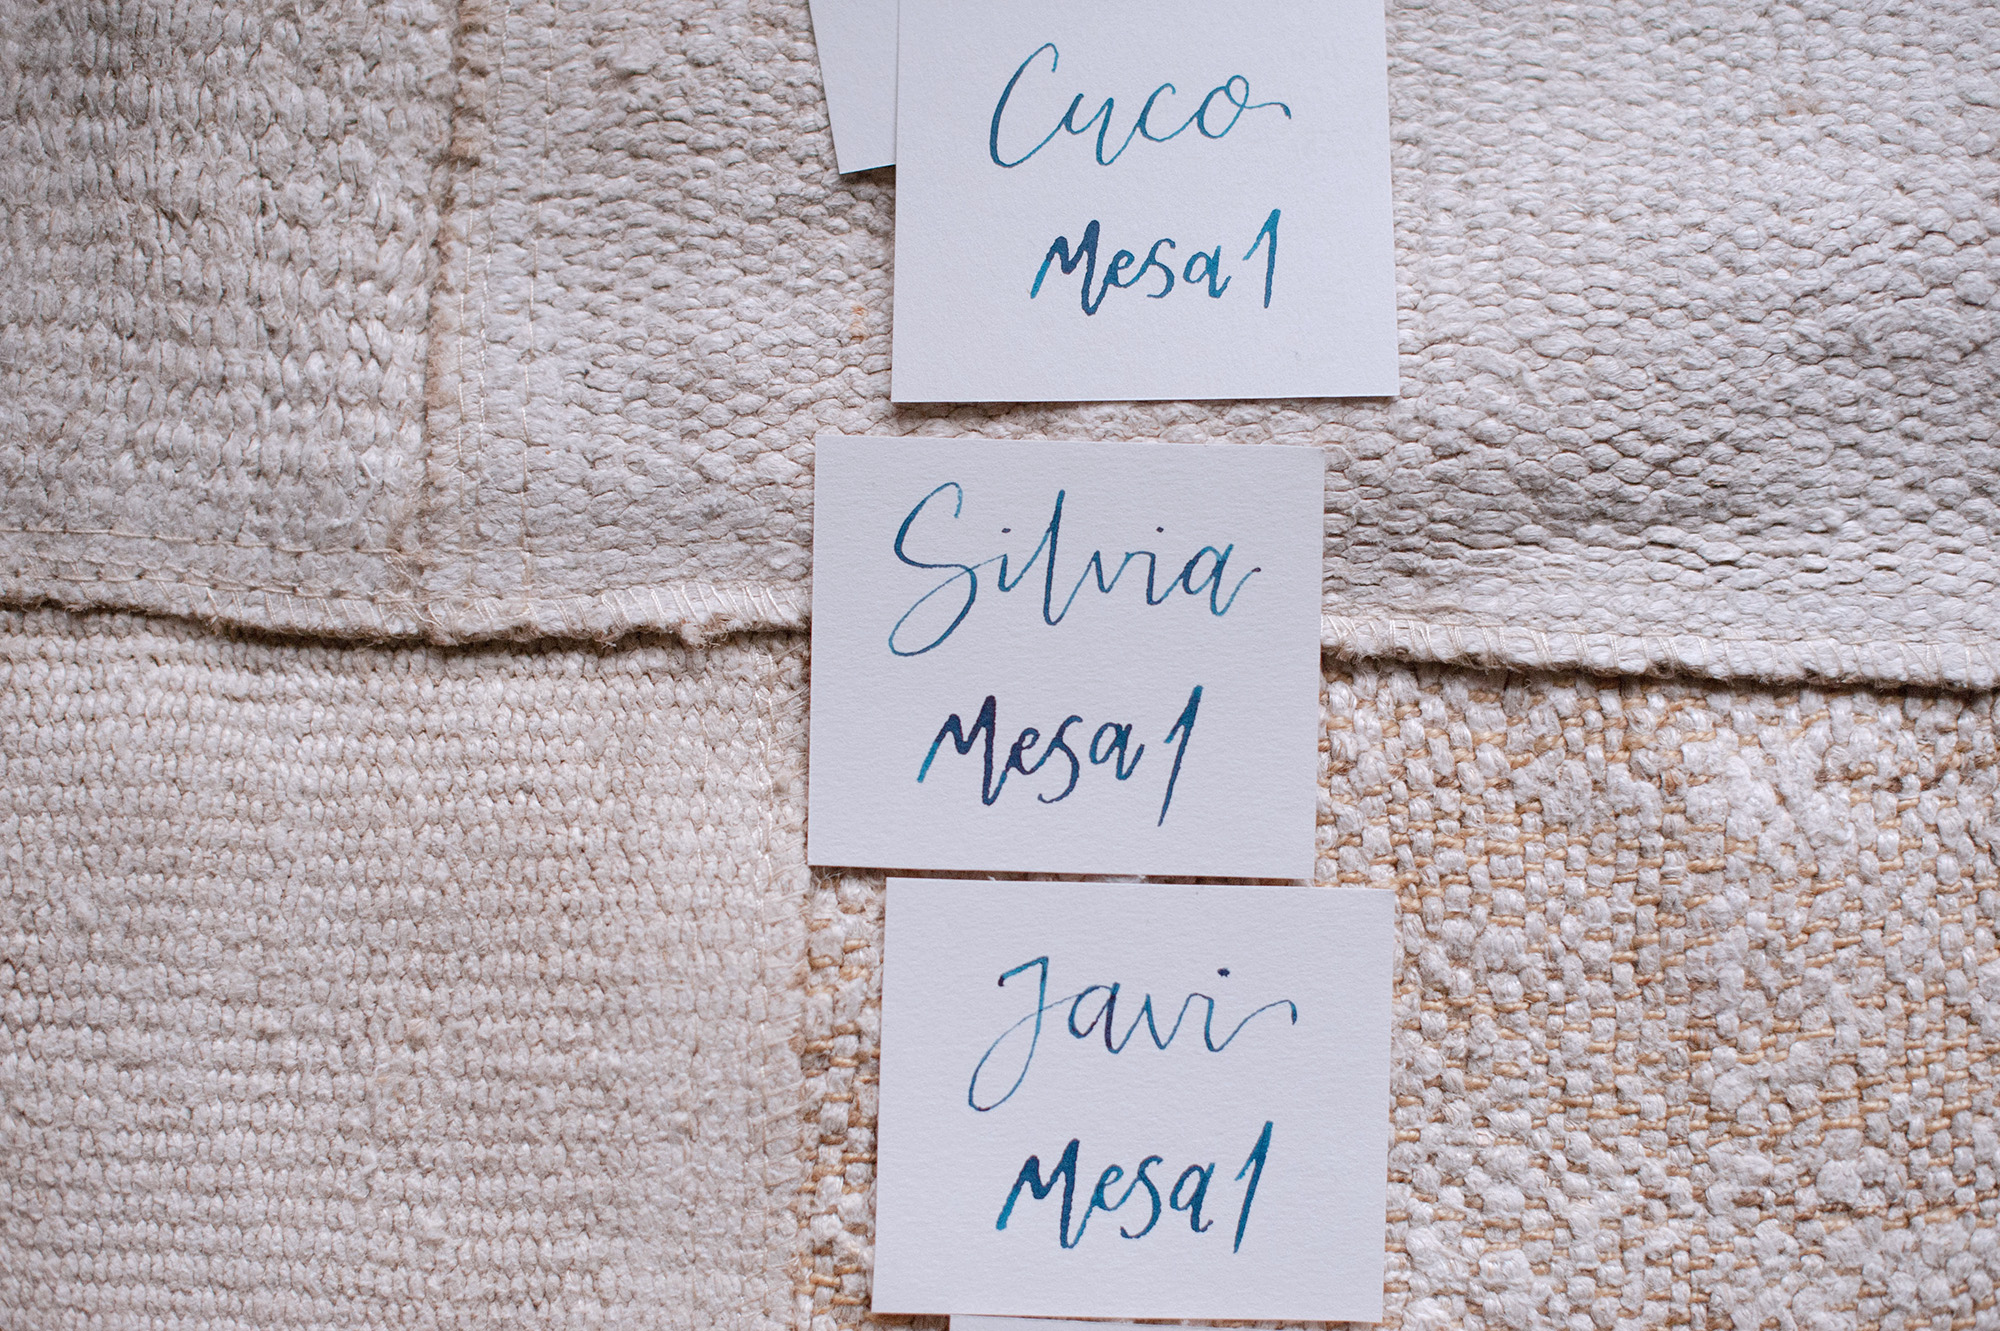 Cuco
Mesa 1
Silvia
Mesa 1
Javi
Mesa 1